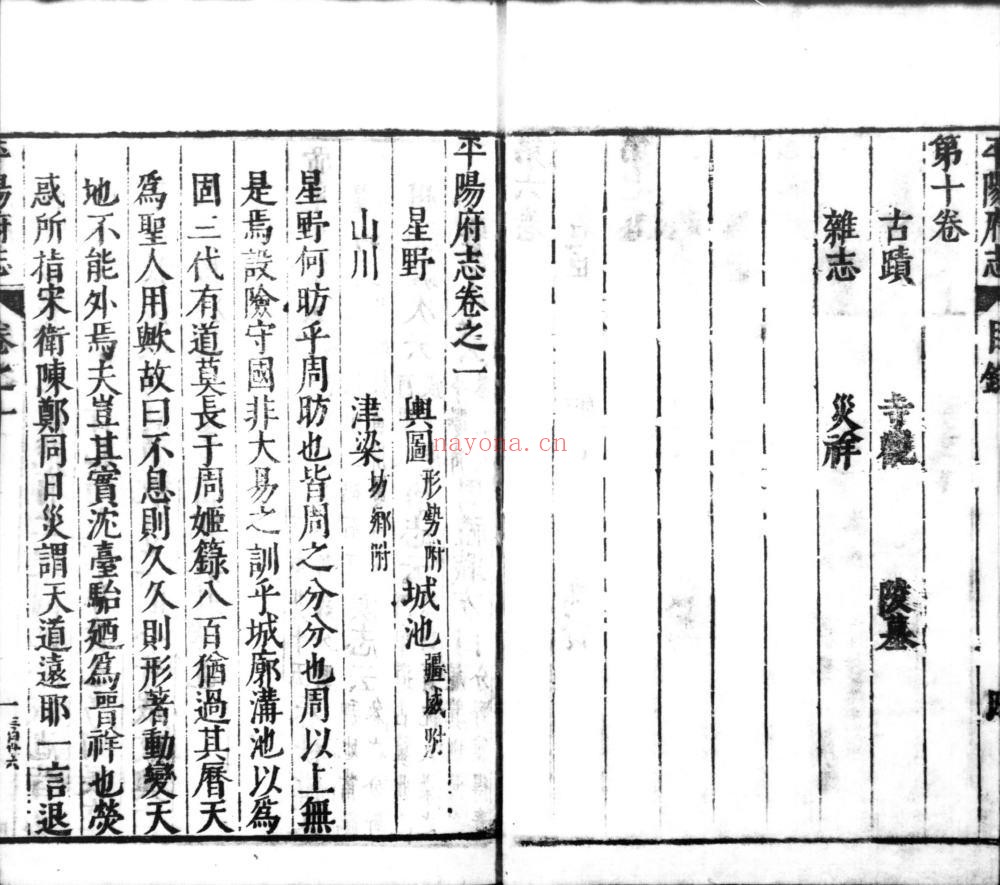 平陽府志
目錄
第十卷
古蹟 寺觀 陵墓
雜志 災祥
平陽府志卷之一
星野 輿圖形勢附 城池疆域附
山川 津梁坊鄉附
星野何昉乎周昉也皆周之分分也周以上無
是焉設險守國非大易之訓乎城廓溝池以爲
固三代有道莫長于周姬籙八百猶過其曆天
爲聖人用歟故曰不息則久久則形著動變天
地不能外焉夫豈其實沈臺駘廼爲晉祥也熒
惑所指宋衛陳鄭同日災謂天道遠耶一言退
平陽府志
卷之一
一
三百廿六
nayona.cn